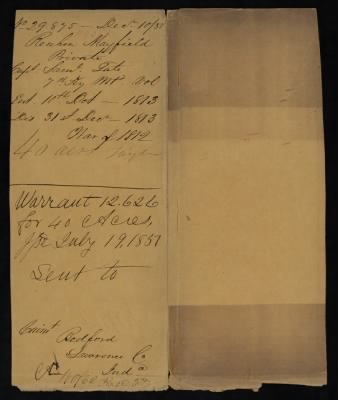 No 29,895 – Dec 10/50
Reuben Mayfield
Private
Capt Saml. Tate
7th Ky Mt Vol
Ent 10th Oct – 1813
Dis 31st Dec – 1813
War of 1812
40 acres
Warrant 12.626
for 40 Acres
July 19, 1851
Sent to
Bedford
Lawrence Co
Ind a